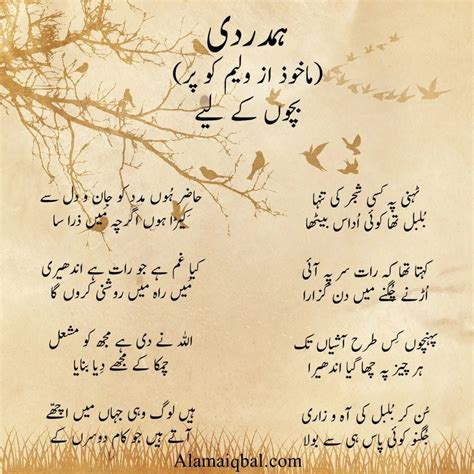 ہمدردی
(ماخوذ از ولیم کوپر)
بچوں کے لیے
ٹہنی پہ کسی شجر کی تنہا
بلبل تھا کوئی اداس بیٹھا
کہتا تھا کہ رات سر پہ آئی
اڑنے چگنے میں دن گزارا
پہنچوں کِس طرح آشیاں تک
ہر چیز پہ چھا گیا اندھیرا
سُن کر بلبل کی آہ و زاری
جگنو کوئی پاس ہی سے بولا
حاضر ہُوں مدد کو جان و دل سے
کیڑا ہوں اگرچہ مَیں ذرا سا
کیا غم ہے جو رات ہے اندھیری
مَیں راہ میں روشنی کروں گا
اللہ نے دی ہے مجھ کو مشعل
چمکا کے مجھے دِیا بنایا
ہیں لوگ وہی جہاں میں اچھے
آتے ہیں جو کام دوسرں کے
Alamaiqbal.com